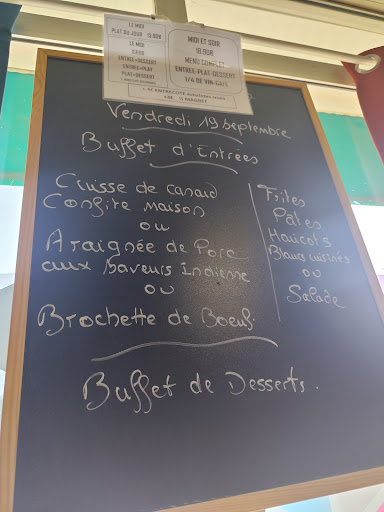 LE MIDI
PLAT DU JOUR
LE MIDI
ENTREE+DESSERT
ENTREE+PLAT
PLAT+DESSERT
MIDI ET SOIR
MENU COMPLET
ENTREE-PLAT-DESSERT
1/4 DE VIN-CAFE
Vendredi 19 septembre
Buffet d'Entrées
Cuisse de canard
Confite maison
ou
Araignée de Porc
aux saveurs Indienne
ou
Brochette de Boeuf.
Frites
Pâtes
Haricots
Blancs cuisinés
ou
Salade
Buffet de Desserts.